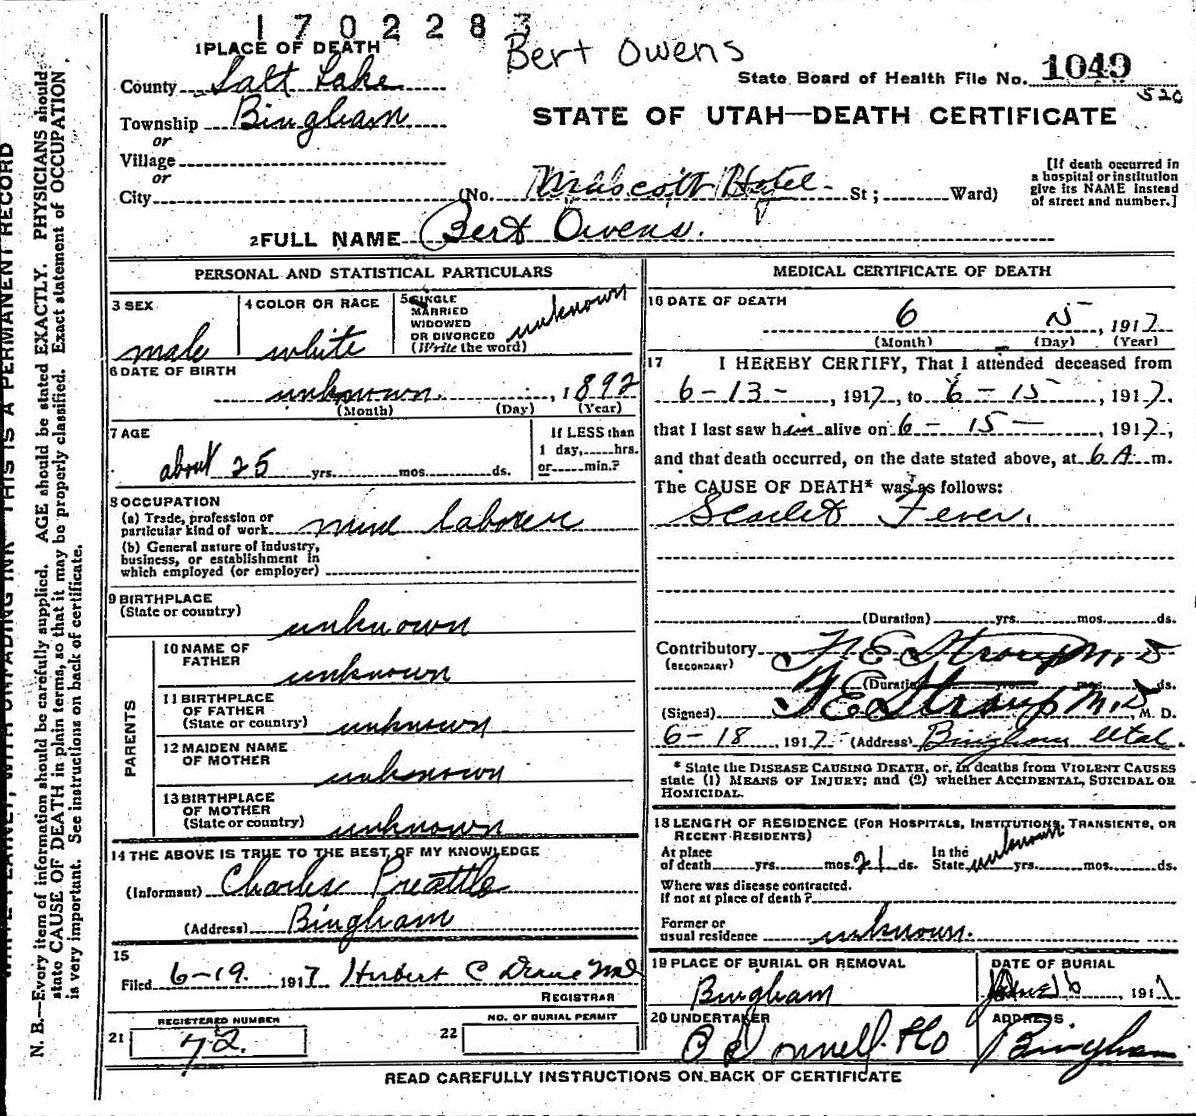 1702283
Bert Owens
1 PLACE OF DEATH
County Salt Lake
State Board of Health File No. 1049
520
Township Bingham
STATE OF UTAH—DEATH CERTIFICATE
or
Village
or
City (No. Hotel St; Ward)
[If death occurred in a hospital or institution give its NAME instead of street and number.]
2 FULL NAME Bert Owens.
PERSONAL AND STATISTICAL PARTICULARS
3 SEX male
4 COLOR OR RACE white
5 SINGLE MARRIED WIDOWED OR DIVORCED (Write the word) unknown
6 DATE OF BIRTH
unknown, 1892
(Month) (Day) (Year)
7 AGE
about 25 yrs. mos. ds.
If LESS than 1 day, hrs. or min.?
8 OCCUPATION
(a) Trade, profession or particular kind of work mine laborer
(b) General nature of industry, business, or establishment in which employed (or employer)
9 BIRTHPLACE
(State or country) unknown
PARENTS
10 NAME OF FATHER unknown
11 BIRTHPLACE OF FATHER (State or country) unknown
12 MAIDEN NAME OF MOTHER unknown
13 BIRTHPLACE OF MOTHER (State or country) unknown
14 THE ABOVE IS TRUE TO THE BEST OF MY KNOWLEDGE
(Informant) Charles
(Address) Bingham
15
Filed 6-19. 1917 Herbert C
REGISTRAR
21 REGISTERED NUMBER 72.
22 NO. OF BURIAL PERMIT
MEDICAL CERTIFICATE OF DEATH
16 DATE OF DEATH
6 , 1917
(Month) (Day) (Year)
17 I HEREBY CERTIFY, That I attended deceased from
6-13-, 1917, to 6-15, 1917.
that I last saw him alive on 6-15-, 1917,
and that death occurred, on the date stated above, at 6 A. m.
The CAUSE OF DEATH* was as follows:
Scarlet Fever.
(Duration) yrs. mos. ds.
Contributory F E Straup M.D
(SECONDARY)
(Duration) mos. ds.
(Signed) F E Straup M.D, M. D.
6-18, 1917 (Address) Bingham Utah.
* State the DISEASE CAUSING DEATH, or, in deaths from VIOLENT CAUSES
state (1) MEANS OF INJURY; and (2) whether ACCIDENTAL, SUICIDAL OR
HOMICIDAL.
18 LENGTH OF RESIDENCE (FOR HOSPITALS, INSTITUTIONS, TRANSIENTS, OR
RECENT RESIDENTS)
At place of death yrs. mos. 21 ds. In the State unknown yrs. mos. ds.
Where was disease contracted.
if not at place of death?
Former or
usual residence unknown.
19 PLACE OF BURIAL OR REMOVAL
Bingham
DATE OF BURIAL
1917
20 UNDERTAKER
O'Donnell & Co
ADDRESS
Bingham
READ CAREFULLY INSTRUCTIONS ON BACK OF CERTIFICATE
THIS IS A PERMANENT RECORD
N. B.—Every item of information should be carefully supplied. AGE should be stated EXACTLY. PHYSICIANS should
state CAUSE OF DEATH in plain terms, so that it may be properly classified. Exact statement of OCCUPATION
is very important. See instructions on back of certificate.